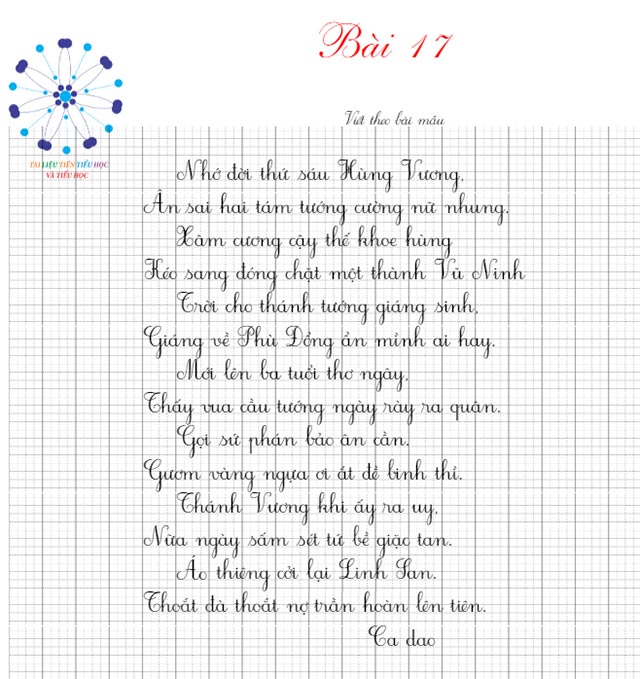 Bài 17
Viết theo bài mẫu
TÀI LIỆU TIỀN TIỂU HỌC
VÀ TIỂU HỌC
Nhớ đời thứ sáu Hùng Vương,
Ân sai hai tám tướng cường nữ nhung.
Xâm cương cậy thế khoe hùng
Kéo sang đóng chật một thành Vũ Ninh
Trời cho thánh tướng giáng sinh,
Giáng về Phù Đổng ẩn mình ai hay.
Mới lên ba tuổi thơ ngây,
Thấy vua cầu tướng ngày rày ra quân.
Gọi sứ phán bảo ân cần.
Gươm vàng ngựa ơi ắt đề binh thỉ.
Thánh Vương khi ấy ra uy,
Nửa ngày sấm sét tứ bề giặc tan.
Áo thiêng cởi lại Linh San.
Thoắt đà thoắt nợ trần hoàn lên tiên.
Ca dao